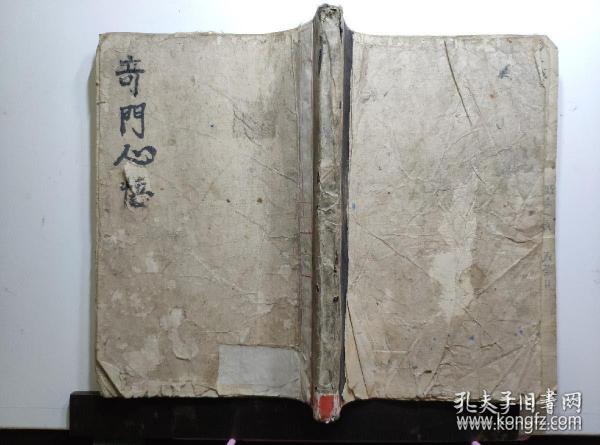 奇門心悟
孔夫子旧書网
www.kongfz.com